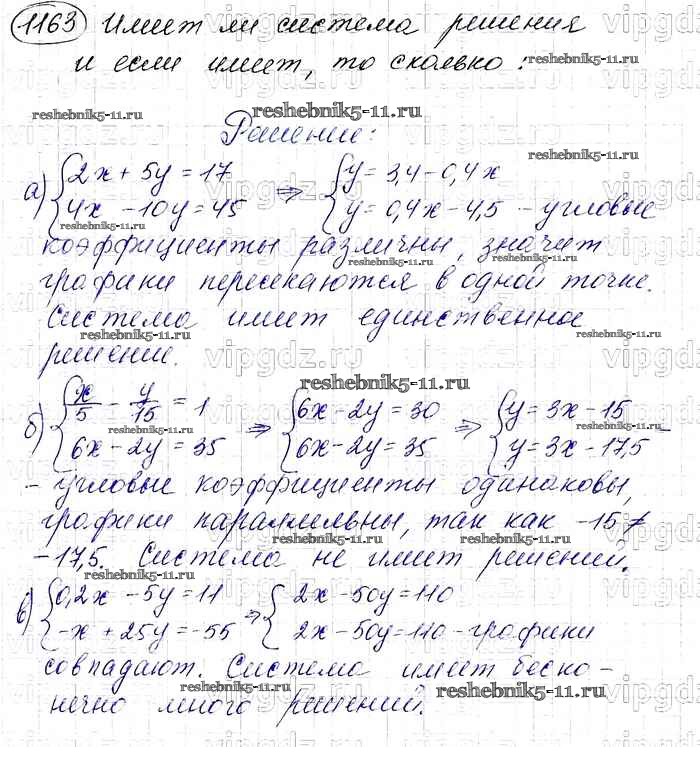 1163 Имеет ли система решения
и если имеет, то сколько?
Решение:
а) {2x + 5y = 17 ⇒ {y = 3,4 - 0,4x
{4x - 10y = 45 {y = 0,4x - 4,5 - угловые
коэффициенты различны, значит
графики пересекаются в одной точке.
Система имеет единственное
решение.
б) {x/5 - y/15 = 1 ⇒ {6x - 2y = 30 ⇒ {y = 3x - 15
{6x - 2y = 35 {6x - 2y = 35 {y = 3x - 17,5 -
- угловые коэффициенты одинаковы,
графики параллельны, так как -15 ≠
-17,5. Система не имеет решений.
в) {0,2x - 5y = 11 ⇒ {2x - 50y = 110
{-x + 25y = -55 {2x - 50y = 110 - графики
совпадают. Система имеет беско-
нечно много решений.
reshebnik5-11.ru
vipgdz.ru